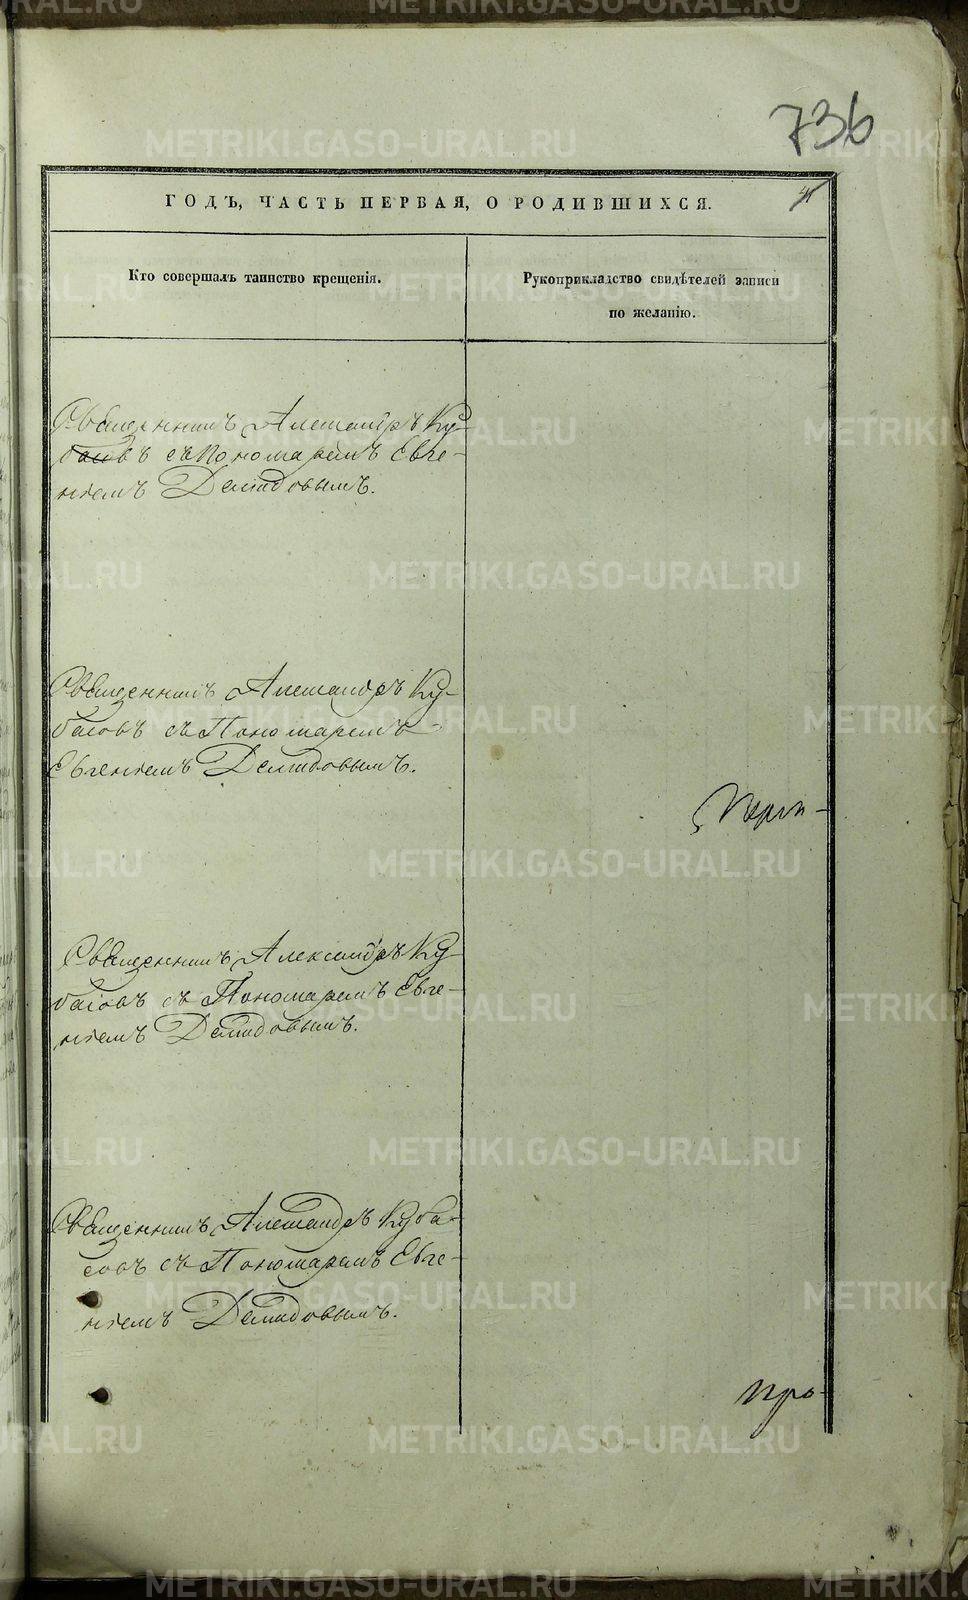 736
41
ГОДЪ, ЧАСТЬ ПЕРВАЯ, О РОДИВШИХСЯ.
Кто совершалъ таинство крещенія.
Рукоприкладство свидѣтелей записи
по желанію.
Священникъ Александръ Ку-
басовъ съ Пономаремъ Евге-
ніемъ Демидовымъ.
Священникъ Александръ Ку-
басовъ съ Пономаремъ
Евгеніемъ Демидовымъ.
Священникъ Александръ Ку-
басовъ съ Пономаремъ Евге-
ніемъ Демидовымъ.
Священникъ Александръ Куба-
совъ съ Пономаремъ Евге-
ніемъ Демидовымъ.
про-
METRIKI.GASO-URAL.RU